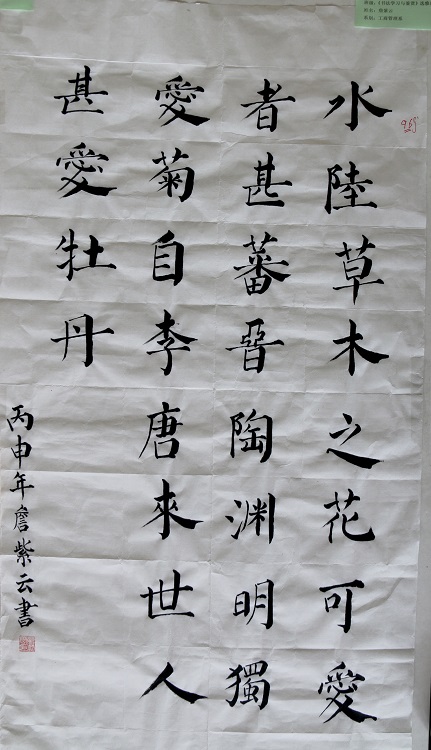 水陸草木之花可愛
者甚蕃晉陶渊明獨
愛菊自李唐來世人
甚愛牡丹
丙申年詹紫云書